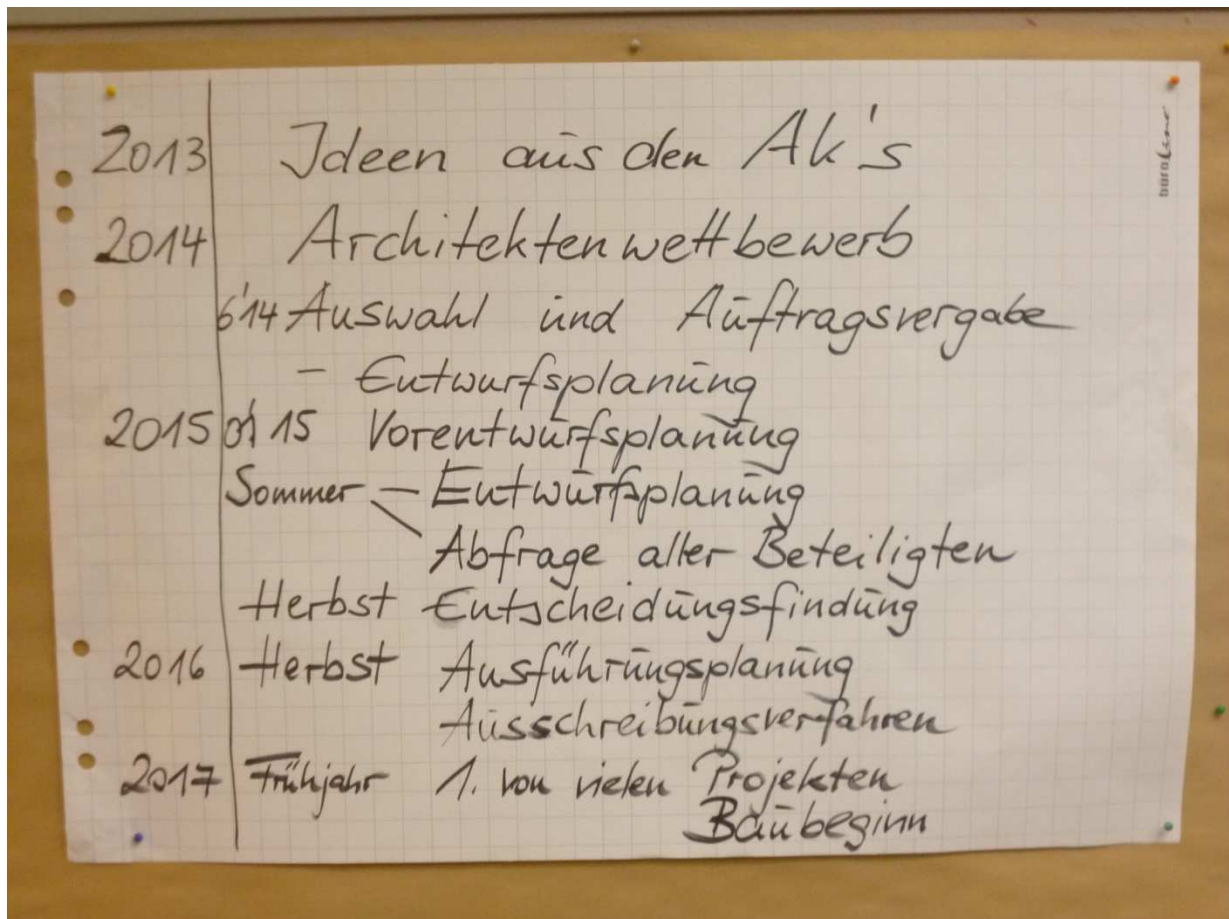 2013 Ideen aus den Ak's
2014 Architektenwettbewerb
6'14 Auswahl und Auftragsvergabe
- Entwurfsplanung
2015 15 Vorentwurfsplanung
Sommer - Entwurfsplanung
Abfrage aller Beteiligten
Herbst Entscheidungsfindung
2016 Herbst Ausführungsplanung
Ausschreibungsverfahren
2017 Frühjahr 1. von vielen Projekten
Baubeginn